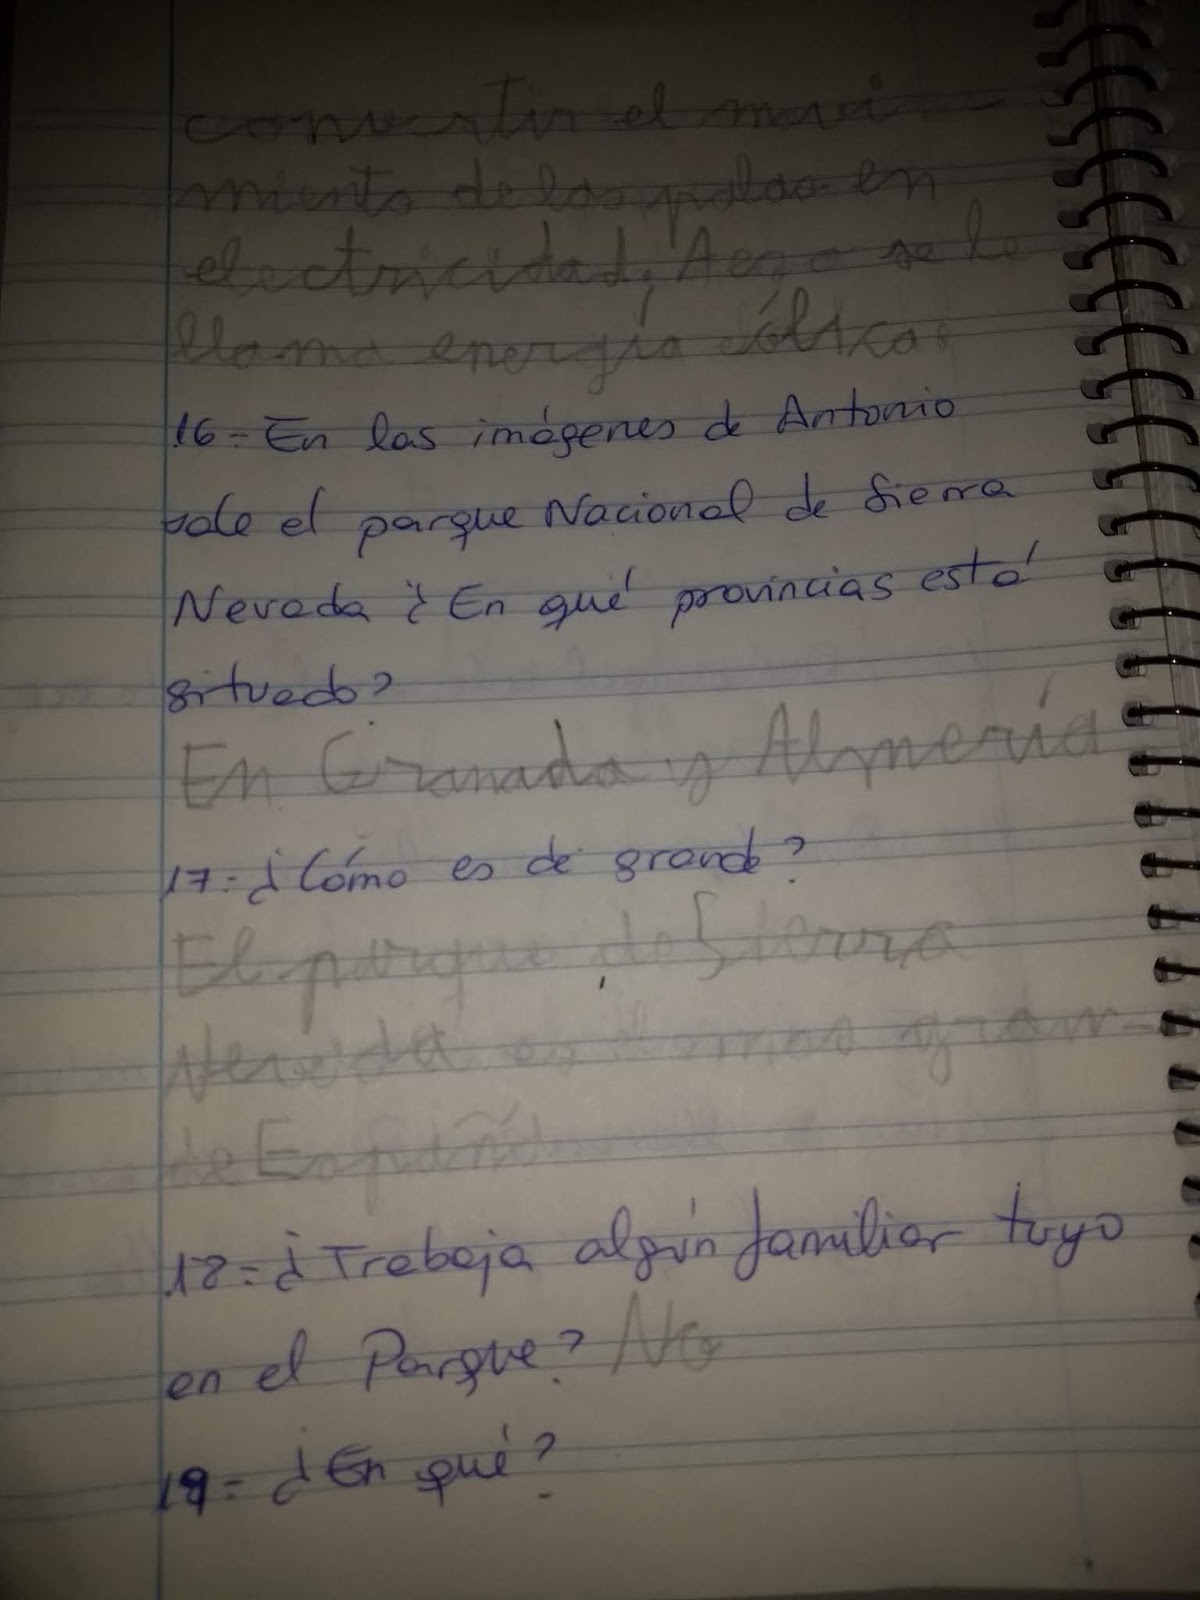 convertir el movi-
miento de las palas en
electricidad. A eso se le
llama energía eólica.
16- En las imágenes de Antonio
sale el parque Nacional de Sierra
Nevada ¿En qué provincias está
situado?
En Granada y Almería
17- ¿Cómo es de grande?
El parque de Sierra
Nevada es mas gran-
de España
18- ¿Trabaja algún familiar tuyo
en el Parque? No
19- ¿En qué?